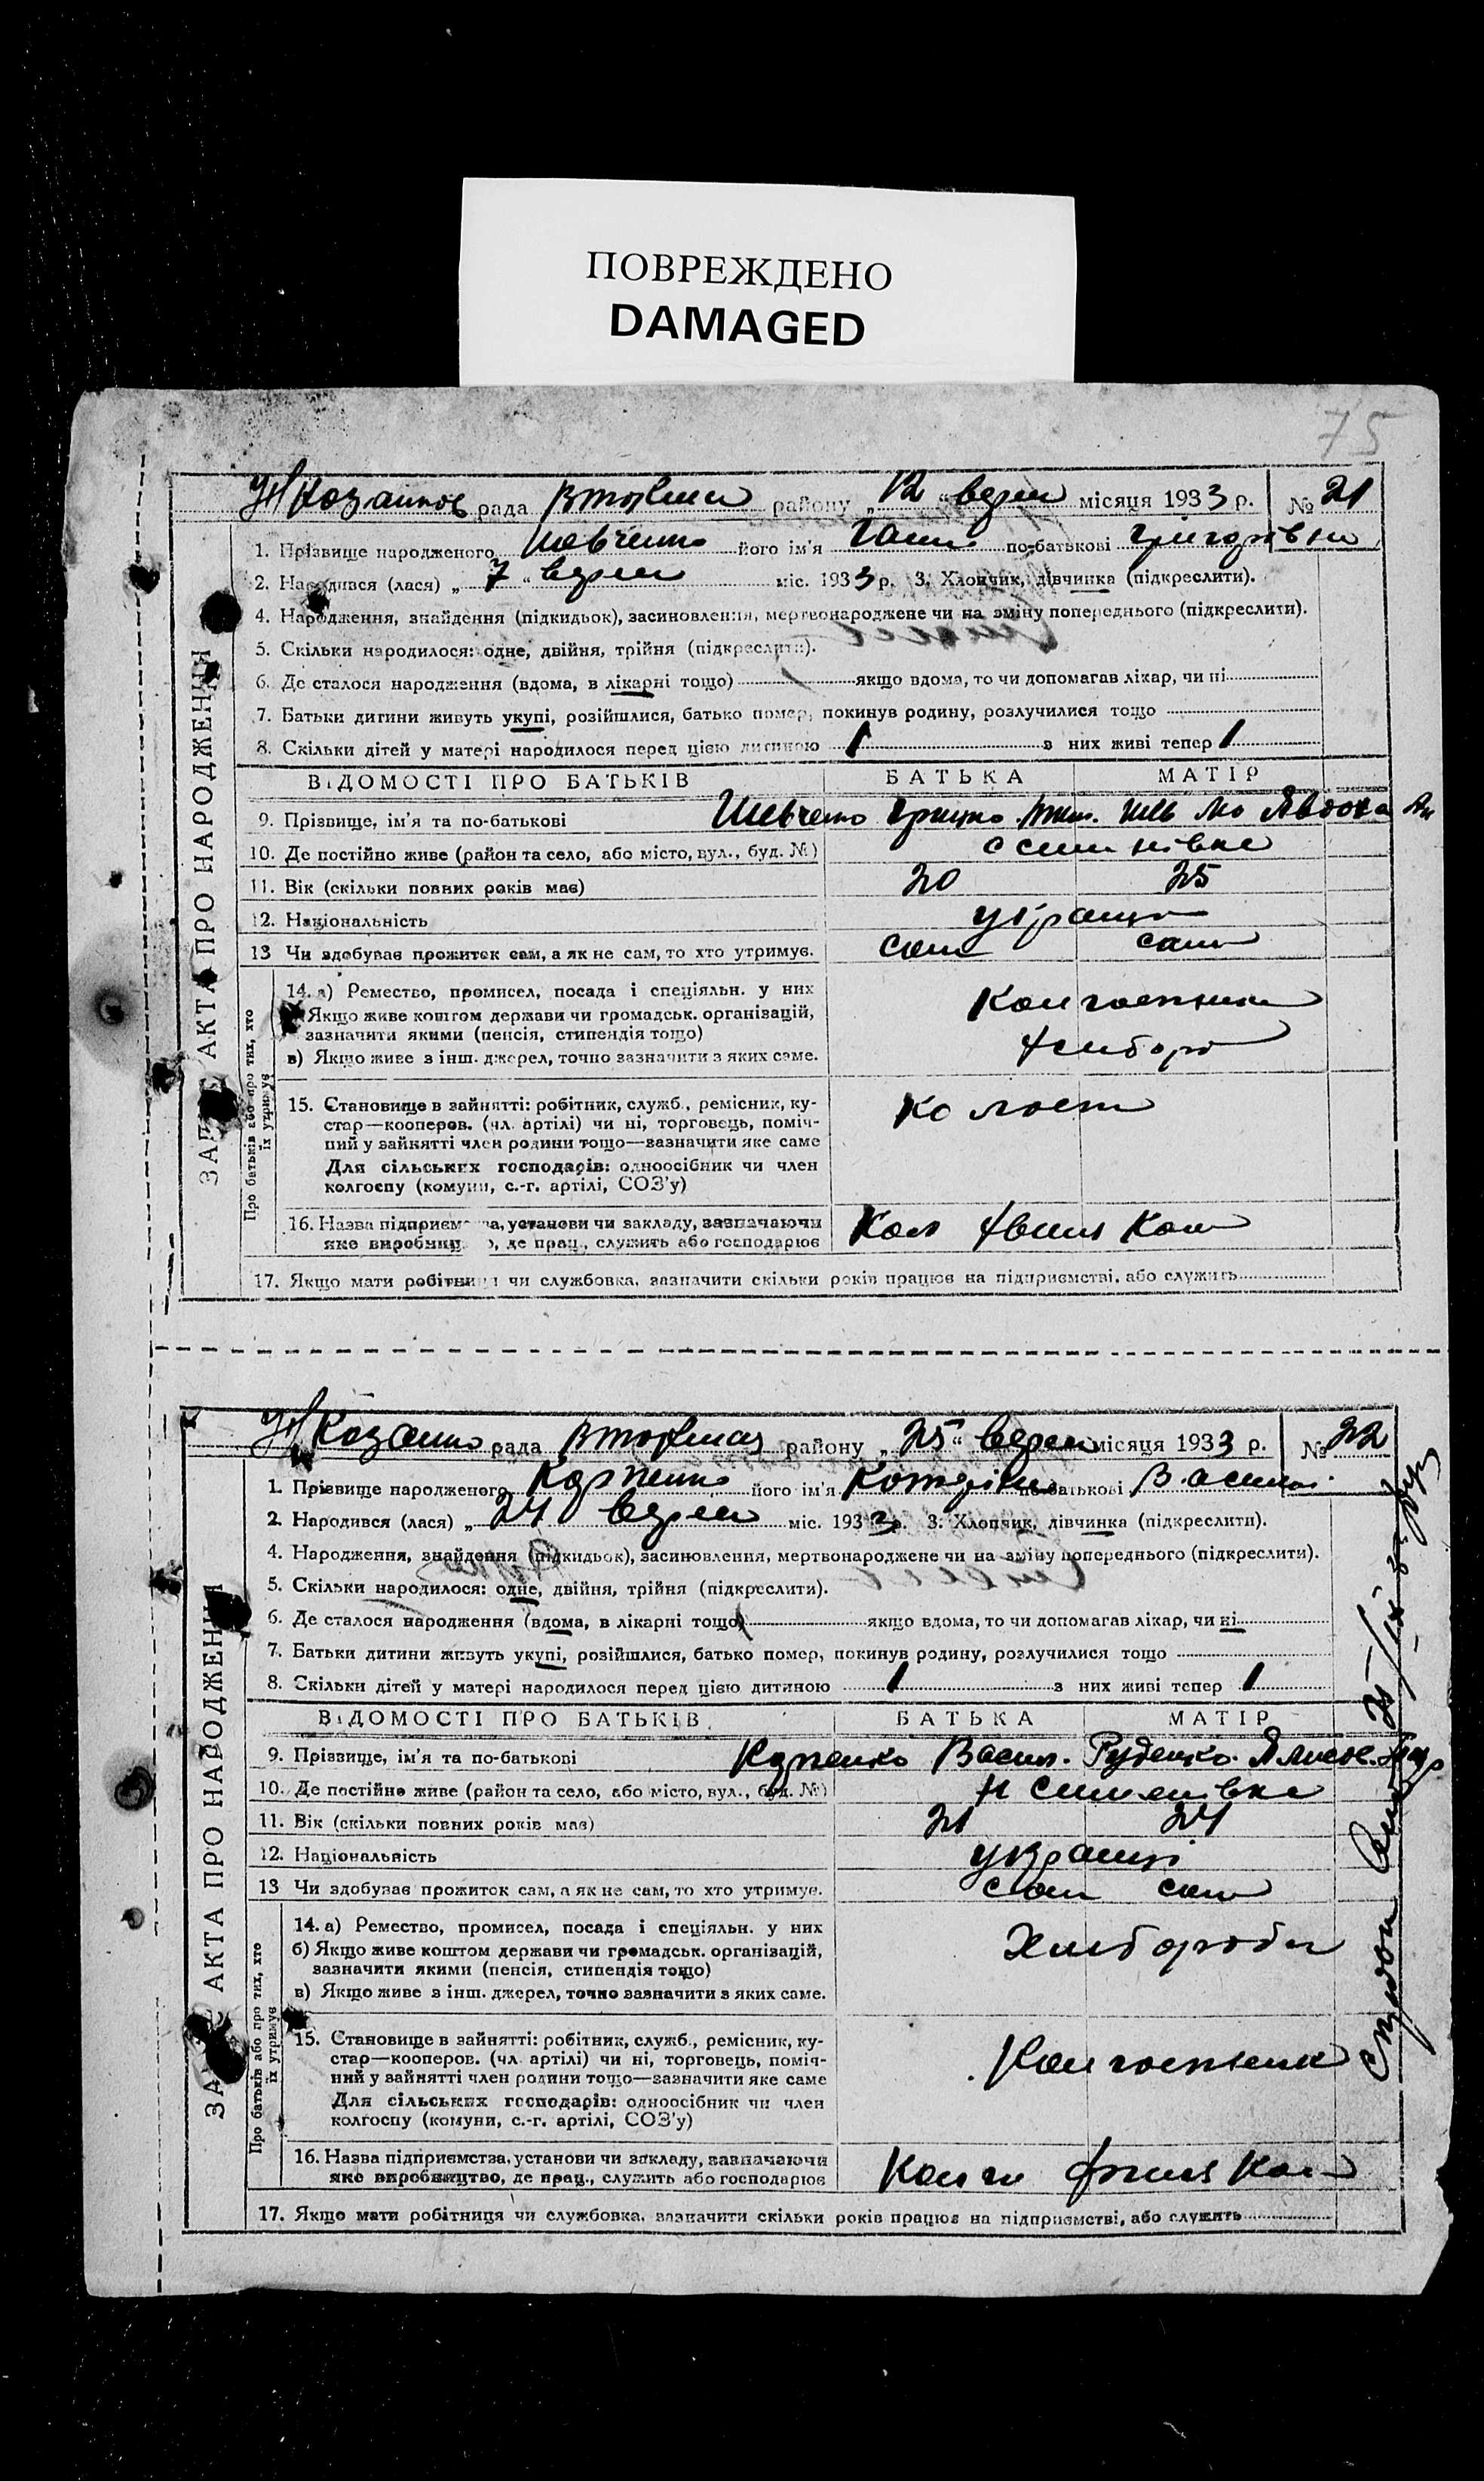 ПОВРЕЖДЕНО
DAMAGED
75
рада району „ 12 “ верес місяця 1933 р. № 21
1. Прізвище народженого Шевченко його ім'я Ганна по-батькові Григорівна
2. Народився (лася) „ 7 “ верес міс. 1933 р. 3. Хлопчик, дівчинка (підкреслити).
4. Народження, знайдення (підкидьок), засиновлення, мертвонароджене чи на зміну попереднього (підкреслити).
5. Скільки народилося: одне, двійня, трійня (підкреслити).
6. Де сталося народження (вдома, в лікарні тощо) якщо вдома, то чи допомагав лікар, чи ні
7. Батьки дитини живуть укупі, розійшлися, батько помер, покинув родину, розлучилися тощо
8. Скільки дітей у матері народилося перед цією дитиною 1 з них живі тепер 1
ВІДОМОСТІ ПРО БАТЬКІВ БАТЬКА МАТІР
9. Прізвище, ім'я та по-батькові Шевченко Грицко
10. Де постійно живе (район та село, або місто, вул., буд. №)
11. Вік (скільки повних років має) 20 25
12. Національність українц
13 Чи здобуває прожиток сам, а як не сам, то хто утримує. сам сам
14. а) Ремество, промисел, посада і спеціяльн. у них
Якщо живе коштом держави чи громадськ. організацій,
зазначити якими (пенсія, стипендія тощо)
в) Якщо живе з інш. джерел, точно зазначити з яких саме.
15. Становище в зайнятті: робітник, служб., ремісник, ку-
стар—кооперов. (чл. артілі) чи ні, торговець, поміч-
ний у зайнятті член родини тощо—зазначити яке саме
Для сільських господарів: одноосібник чи член
колгоспу (комуни, с.-г. артілі, СОЗ'у)
16. Назва підприємства, установи чи закладу, зазначаючи
яке виробниц , де прац., служить або господарює
17. Якщо мати робітниця чи службовка, зазначити скільки років працює на підприємстві, або служить
ЗАПИС АКТА ПРО НАРОДЖЕННЯ
Про батьків або про тих, хто
їх утримує
рада району „ 25 “ верес місяця 1933 р. № 22
1. Прізвище народженого Карпенко його ім'я Катерина по-батькові Васил
2. Народився (лася) „ 24 верес міс. 1933 р. 3. Хлопчик, дівчинка (підкреслити).
4. Народження, знайдення (підкидьок), засиновлення, мертвонароджене чи на зміну попереднього (підкреслити).
5. Скільки народилося: одне, двійня, трійня (підкреслити).
6. Де сталося народження (вдома, в лікарні тощо) якщо вдома, то чи допомагав лікар, чи ні
7. Батьки дитини живуть укупі, розійшлися, батько помер, покинув родину, розлучилися тощо
8. Скільки дітей у матері народилося перед цією дитиною 1 з них живі тепер 1
ВІДОМОСТІ ПРО БАТЬКІВ БАТЬКА МАТІР
9. Прізвище, ім'я та по-батькові Карпенко Васил. Руденко
10. Де постійно живе (район та село, або місто, вул., буд. №)
11. Вік (скільки повних років має) 21 24
12. Національність українці
13 Чи здобуває прожиток сам, а як не сам, то хто утримує. сам сам
14. а) Ремество, промисел, посада і спеціяльн. у них
б) Якщо живе коштом держави чи громадськ. організацій,
зазначити якими (пенсія, стипендія тощо)
в) Якщо живе з інш. джерел, точно зазначити з яких саме.
Хлібороби
15. Становище в зайнятті: робітник, служб., ремісник, ку-
стар—кооперов. (чл. артілі) чи ні, торговець, поміч-
ний у зайнятті член родини тощо—зазначити яке саме
Для сільських господарів: одноосібник чи член
колгоспу (комуни, с.-г. артілі, СОЗ'у)
16. Назва підприємства, установи чи закладу, зазначаючи
яке виробництво, де прац., служить або господарює
17. Якщо мати робітниця чи службовка, зазначити скільки років працює на підприємстві, або служить
ЗАПИС АКТА ПРО НАРОДЖЕННЯ
Про батьків або про тих, хто
їх утримує